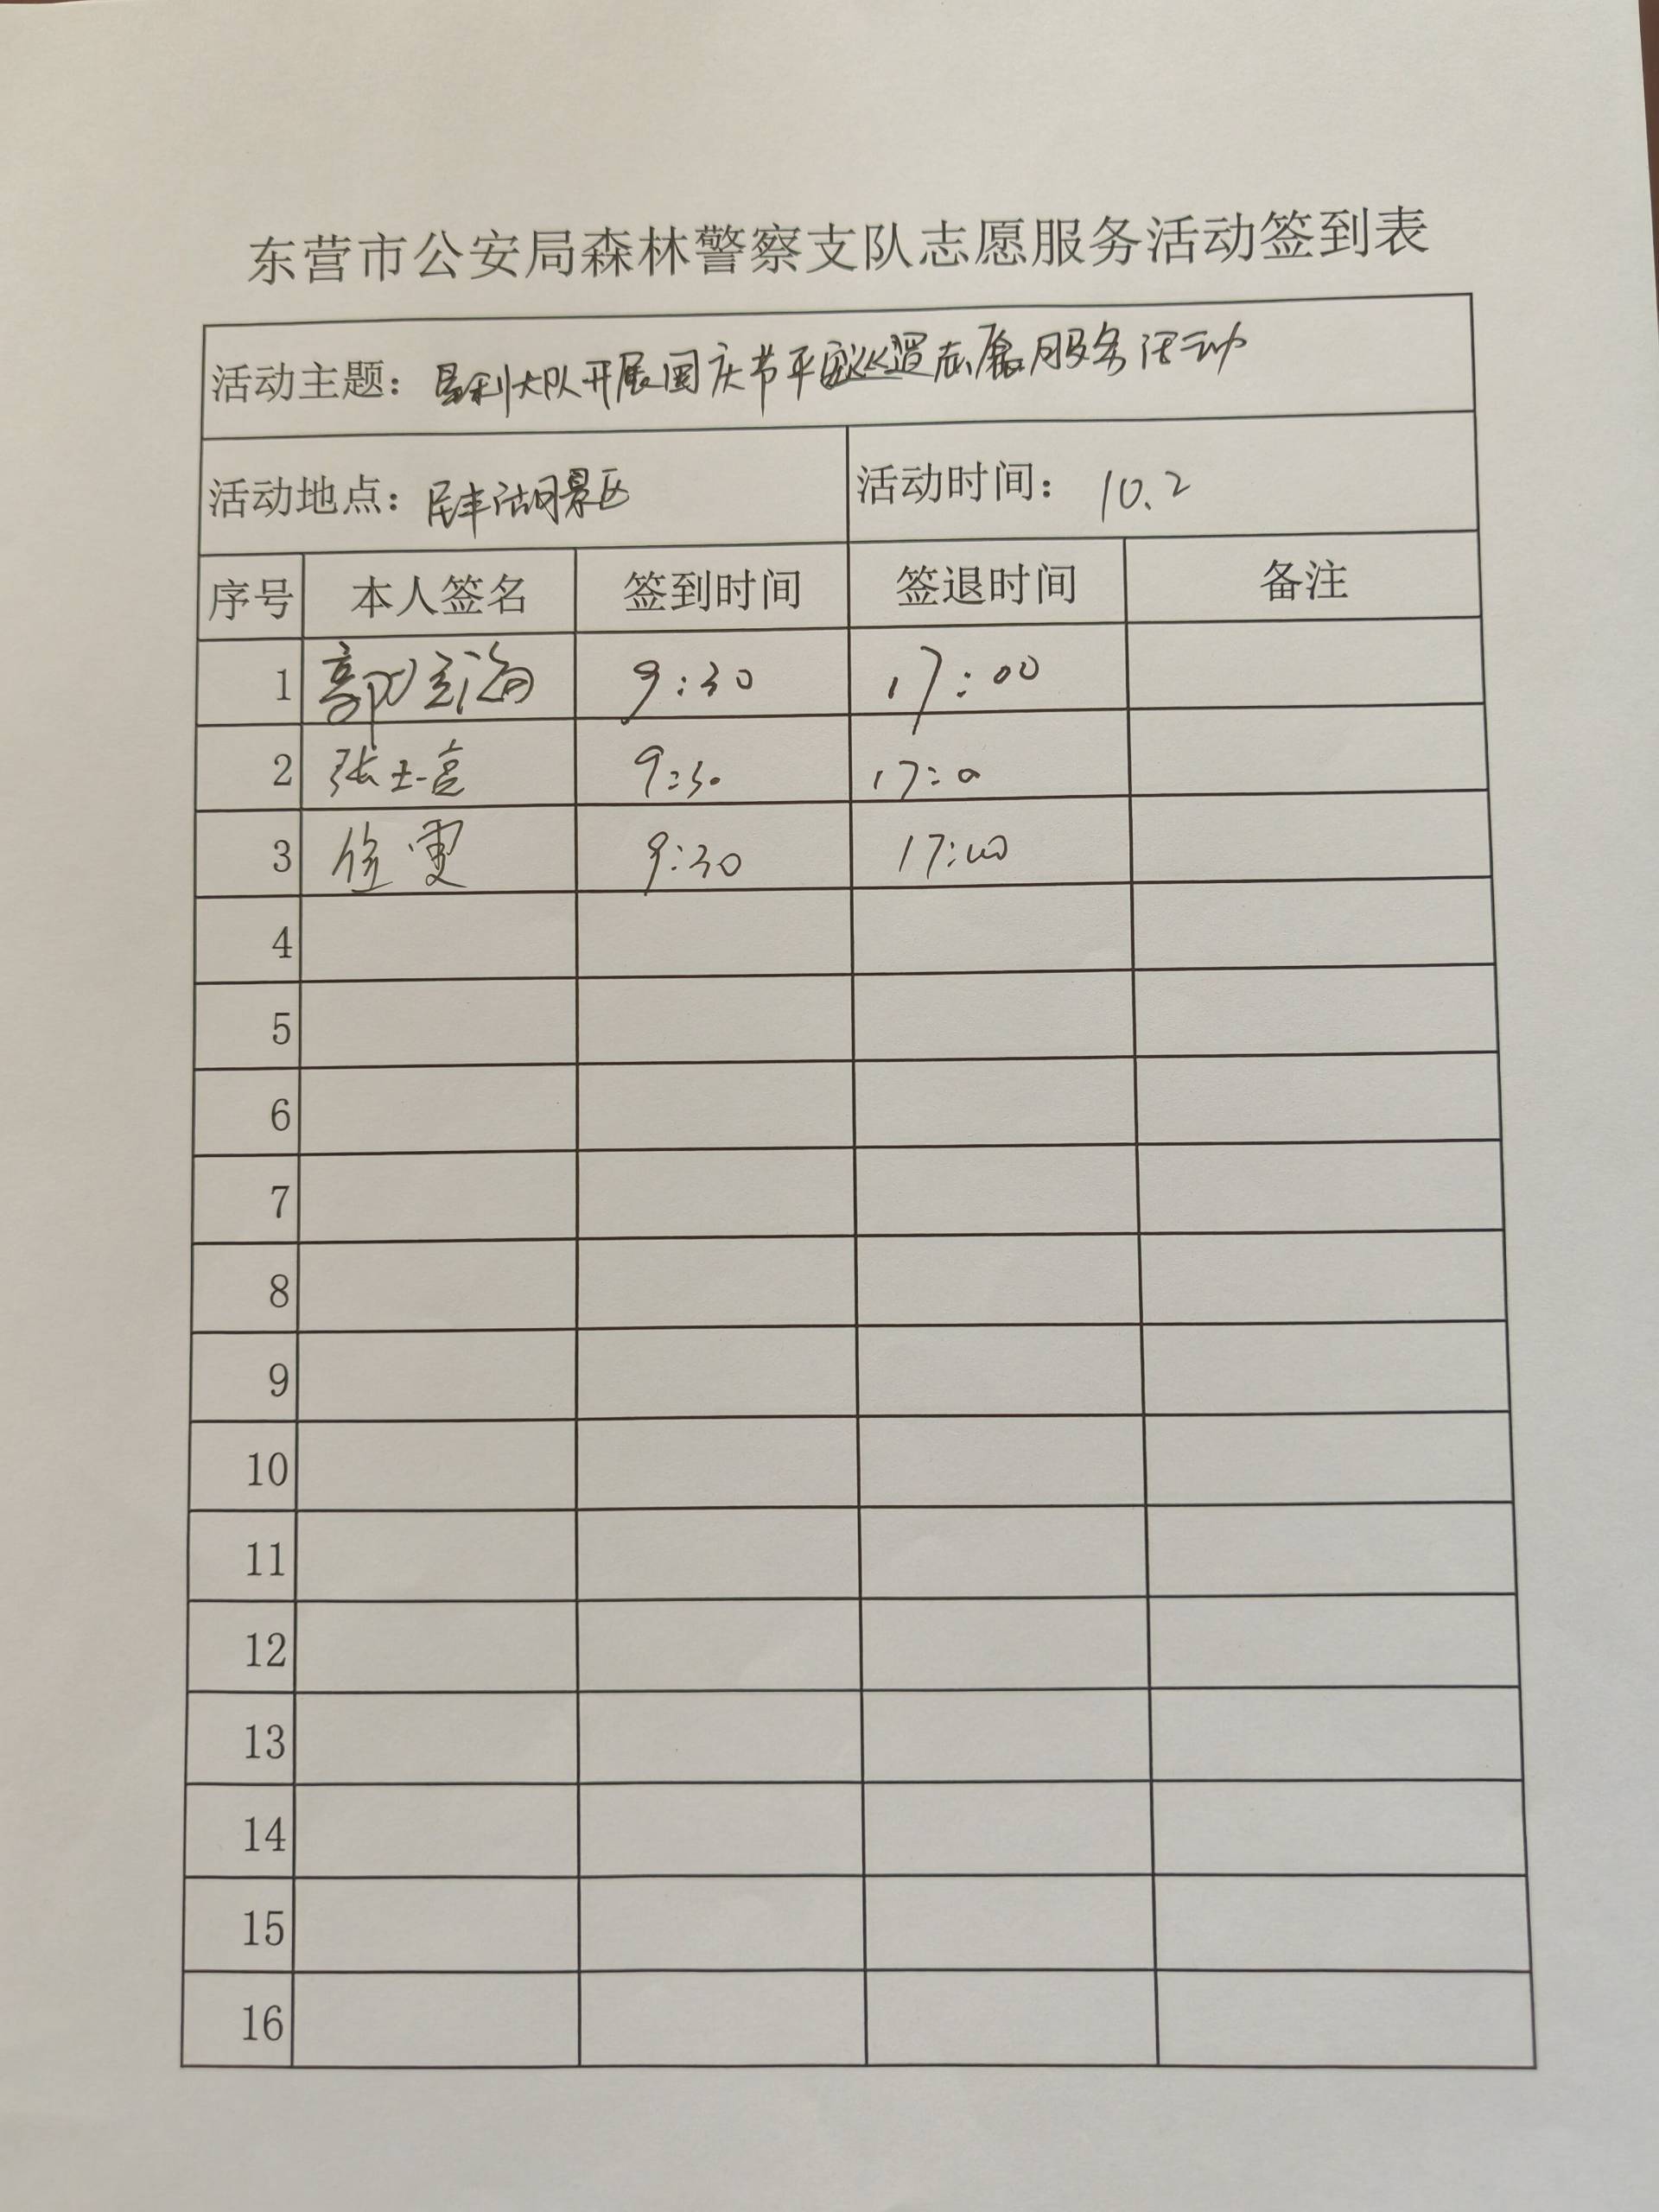 东营市公安局森林警察支队志愿服务活动签到表
活动主题：垦利大队开展国庆节平安巡逻志愿服务活动
活动地点：民丰湖景区 活动时间：10.2
序号 本人签名 签到时间 签退时间 备注
1 郭海 9:30 17:00
2 张玉亮 9:30 17:0
3 徐雯 9:30 17:00
4
5
6
7
8
9
10
11
12
13
14
15
16